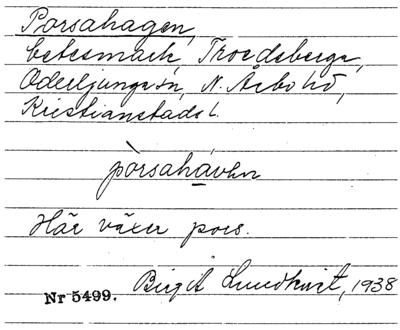 Porsahagen,
betesmark, Troedsberga,
Oderljunga sn, N. Åsbo hd,
Kristianstads l.
pòrsahávhn
Här växer pors.
Birgit Lundkvist, 1938
Nr 5499.